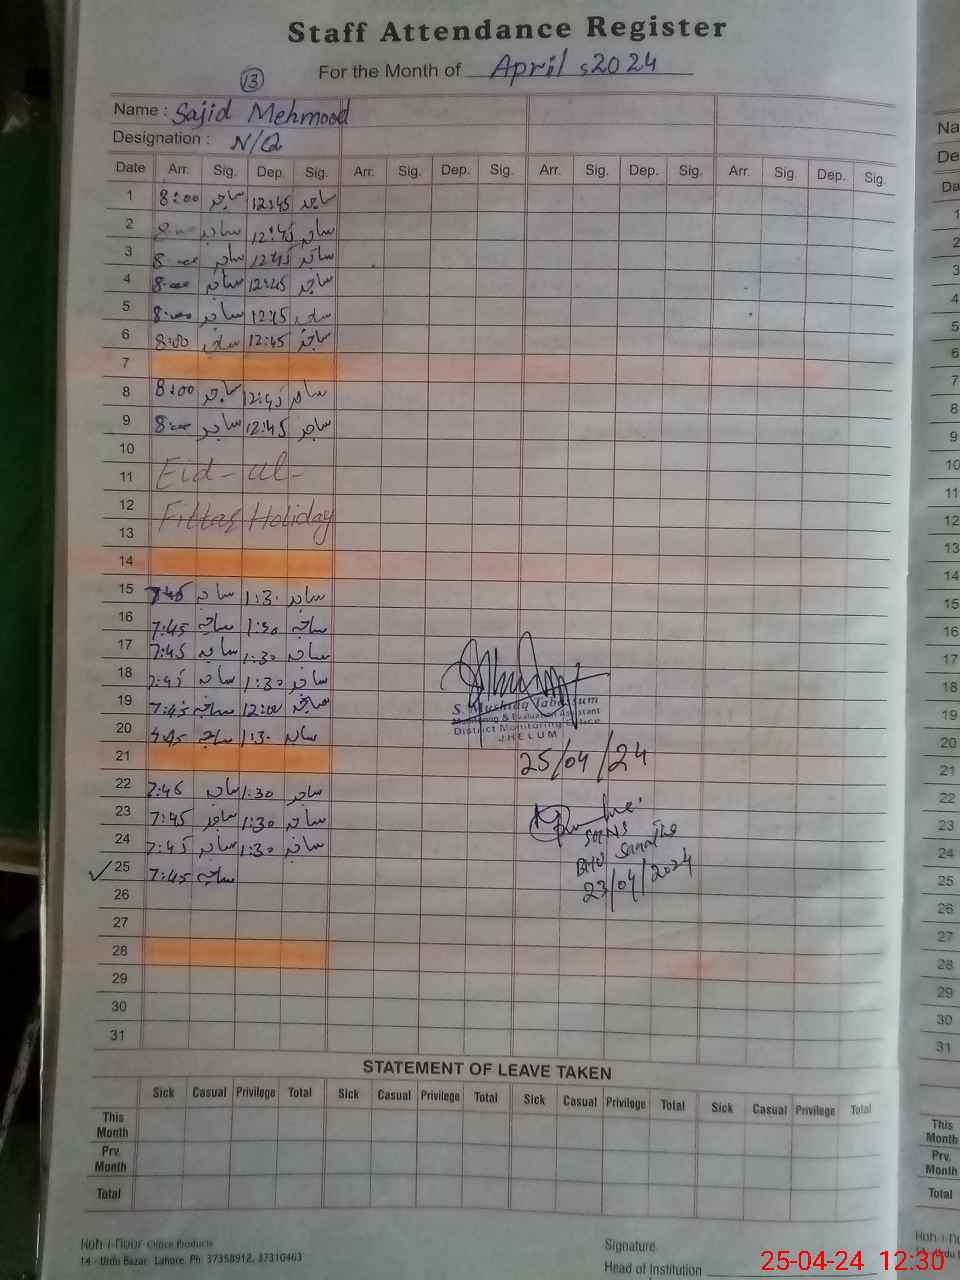 Staff Attendance Register
For the Month of April, 2024
13
Name : Sajid Mehmood
Designation : N/Q
Date Arr. Sig. Dep. Sig. Arr. Sig. Dep. Sig. Arr. Sig. Dep. Sig. Arr. Sig. Dep. Sig.
1 8:00 ساجد 12:45 ساجد
2 ساجد 12:45 ساجد
3 8:00 ساجد 12:45 ساجد
4 8:00 ساجد 12:45 ساجد
5 8:00 ساجد 12:45 ساجد
6 8:00 ساجد 12:45 ساجد
7
8 8:00 ساجد 12:45 ساجد
9 8:00 ساجد 12:45 ساجد
10
11 Eid-ul-
12 Fitter Holiday
13
14
15 7:45 ساجد 1:30 ساجد
16 7:45 ساجد 1:30 ساجد
17 7:45 ساجد 1:30 ساجد
18 7:45 ساجد 1:30 ساجد
19 7:45 ساجد 12:00 ساجد
20 7:45 ساجد 1:30 ساجد
21
22 7:45 ساجد 1:30 ساجد
23 7:45 ساجد 1:30 ساجد
24 7:45 ساجد 1:30 ساجد
25 7:45 ساجد
26
27
28
29
30
31
S. Mushtaq Tabassum
Monitoring & Evaluation Assistant
District Monitoring Office
JHELUM
25/04/24
BHU
23/04/2024
STATEMENT OF LEAVE TAKEN
Sick Casual Privilege Total Sick Casual Privilege Total Sick Casual Privilege Total Sick Casual Privilege Total
This Month
Prv. Month
Total
Koh-i-noor Office Products
14 - Urdu Bazar, Lahore. Ph: 37358912, 37310463
Signature
Head of Institution
25-04-24 12:30